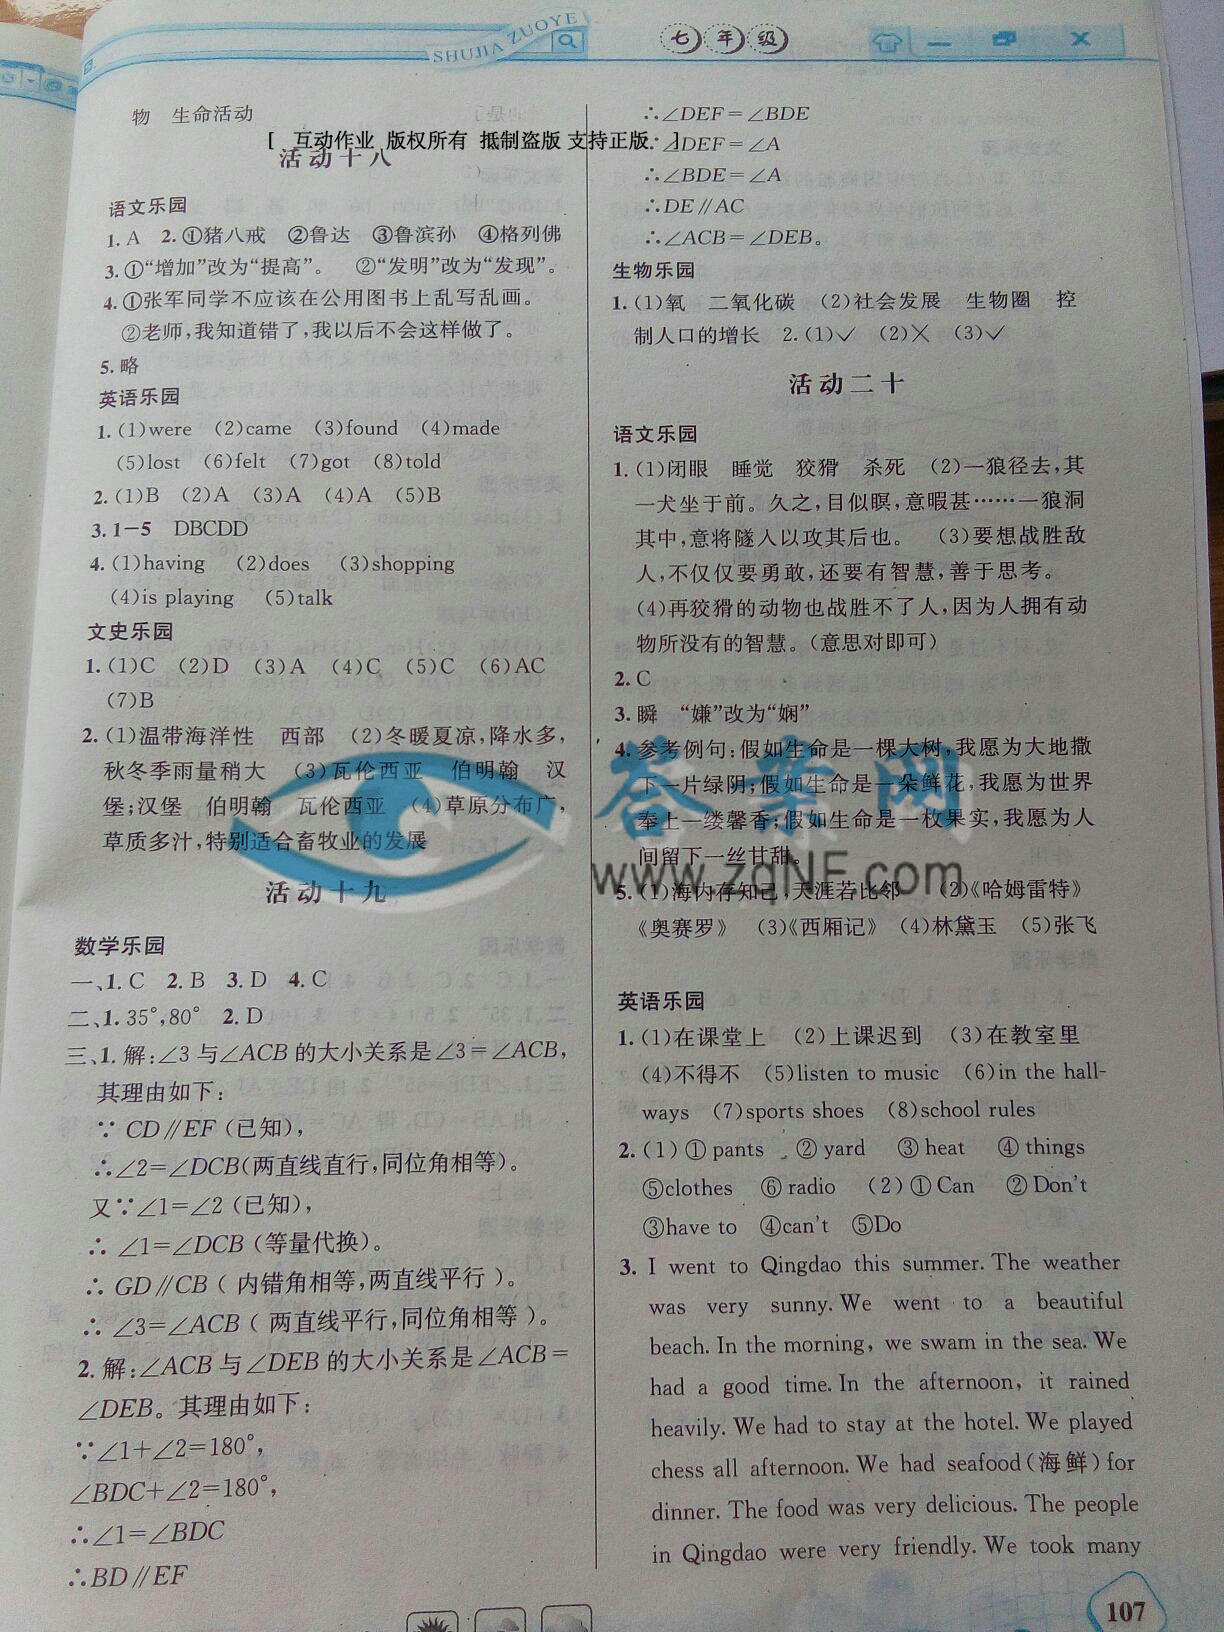 SHUJIA ZUOYE
七年级
物　生命活动
[　互动作业 版权所有 抵制盗版 支持正版　]
活动十八
语文乐园
1. A　2. ①猪八戒　②鲁达　③鲁滨孙　④格列佛
3. ①“增加”改为“提高”。　②“发明”改为“发现”。
4. ①张军同学不应该在公用图书上乱写乱画。
②老师,我知道错了,我以后不会这样做了。
5. 略
英语乐园
1. (1)were　(2)came　(3)found　(4)made
(5)lost　(6)felt　(7)got　(8)told
2. (1)B　(2)A　(3)A　(4)A　(5)B
3. 1－5　DBCDD
4. (1)having　(2)does　(3)shopping
(4)is playing　(5)talk
文史乐园
1. (1)C　(2)D　(3)A　(4)C　(5)C　(6)AC
(7)B
2. (1)温带海洋性　西部　(2)冬暖夏凉,降水多,
秋冬季雨量稍大　(3)瓦伦西亚　伯明翰　汉
堡;汉堡　伯明翰　瓦伦西亚　(4)草原分布广,
草质多汁,特别适合畜牧业的发展
活动十九
数学乐园
一、1. C　2. B　3. D　4. C
二、1. 35°,80°　2. D
三、1. 解:∠3与∠ACB的大小关系是∠3=∠ACB,
其理由如下:
∵ CD∥EF(已知),
∴∠2=∠DCB(两直线直行,同位角相等)。
又∵∠1=∠2(已知),
∴ ∠1=∠DCB(等量代换)。
∴ GD∥CB( 内错角相等,两直线平行 )。
∴ ∠3=∠ACB( 两直线平行,同位角相等 )。
2. 解:∠ACB与∠DEB的大小关系是∠ACB=
∠DEB。其理由如下:
∵∠1+∠2=180°,
∠BDC+∠2=180°,
∴∠1=∠BDC
∴BD∥EF
∴∠DEF=∠BDE
∵∠DEF=∠A
∴∠BDE=∠A
∴DE∥AC
∴∠ACB=∠DEB。
生物乐园
1. (1)氧　二氧化碳　(2)社会发展　生物圈　控
制人口的增长　2. (1)✓　(2)✕　(3)✓
活动二十
语文乐园
1. (1)闭眼　睡觉　狡猾　杀死　(2)一狼径去,其
一犬坐于前。久之,目似瞑,意暇甚……一狼洞
其中,意将隧入以攻其后也。　(3)要想战胜敌
人,不仅仅要勇敢,还要有智慧,善于思考。
(4)再狡猾的动物也战胜不了人,因为人拥有动
物所没有的智慧。(意思对即可)
2. C
3. 瞬　“嫌”改为“娴”
4. 参考例句:假如生命是一棵大树,我愿为大地撒
下一片绿阴;假如生命是一朵鲜花,我愿为世界
奉上一缕馨香;假如生命是一枚果实,我愿为人
间留下一丝甘甜。
5. (1)海内存知己,天涯若比邻　(2)《哈姆雷特》
《奥赛罗》　(3)《西厢记》　(4)林黛玉　(5)张飞
英语乐园
1. (1)在课堂上　(2)上课迟到　(3)在教室里
(4)不得不　(5)listen to music　(6)in the hall-
ways　(7)sports shoes　(8)school rules
2. (1)① pants　② yard　③ heat　④ things
⑤clothes　⑥ radio　(2)① Can　② Don't
③have to　④can't　⑤Do
3. I went to Qingdao this summer. The weather
was very sunny. We went to a beautiful
beach. In the morning, we swam in the sea. We
had a good time. In the afternoon, it rained
heavily. We had to stay at the hotel. We played
chess all afternoon. We had seafood(海鲜)for
dinner. The food was very delicious. The people
in Qingdao were very friendly. We took many
答案网
www.zqNF.com
107